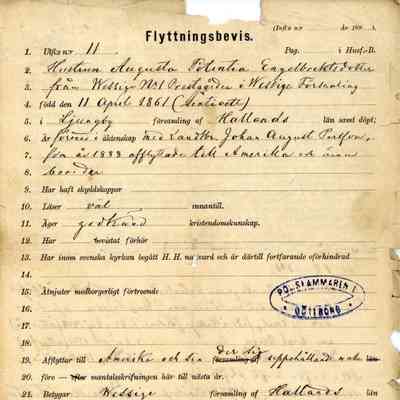 (Infkn n:r År 188
Flyttningsbevis.
1. Utfkn n:r 11 Pag. i Husf.-B.
2. Hustrun Augusta Potentia Engelbrektsdotter
3. från Wessige N:1 Prestgården i Wessige Församling
4. född den 11 April 1861 (
5. i Ljungby församling af Hallands län samt döpt;
6. är förenad i äktenskap med Landtbr. Johan August
7. år 1888 afflyttade till Amerika och ännu
8. bor der
9. Har haft skyddskoppor
10. Läser väl innantill.
11. Äger godkänd kristendomskunskap.
12. Har bevistat förhör
13. Har inom svenska kyrkan begått H. H. nattvard och är därtill fortfarande oförhindrad
14.
15. Åtnjuter medborgerligt förtroende
16.
17.
18.
19. Afflyttar till Amerika och der sig församling af uppehålla län
20. före — efter mantalsskrifningen här till nästa år.
21. Betygar Wessige församling af Hallands län
POLISKAMMAREN I
GÖTEBORG